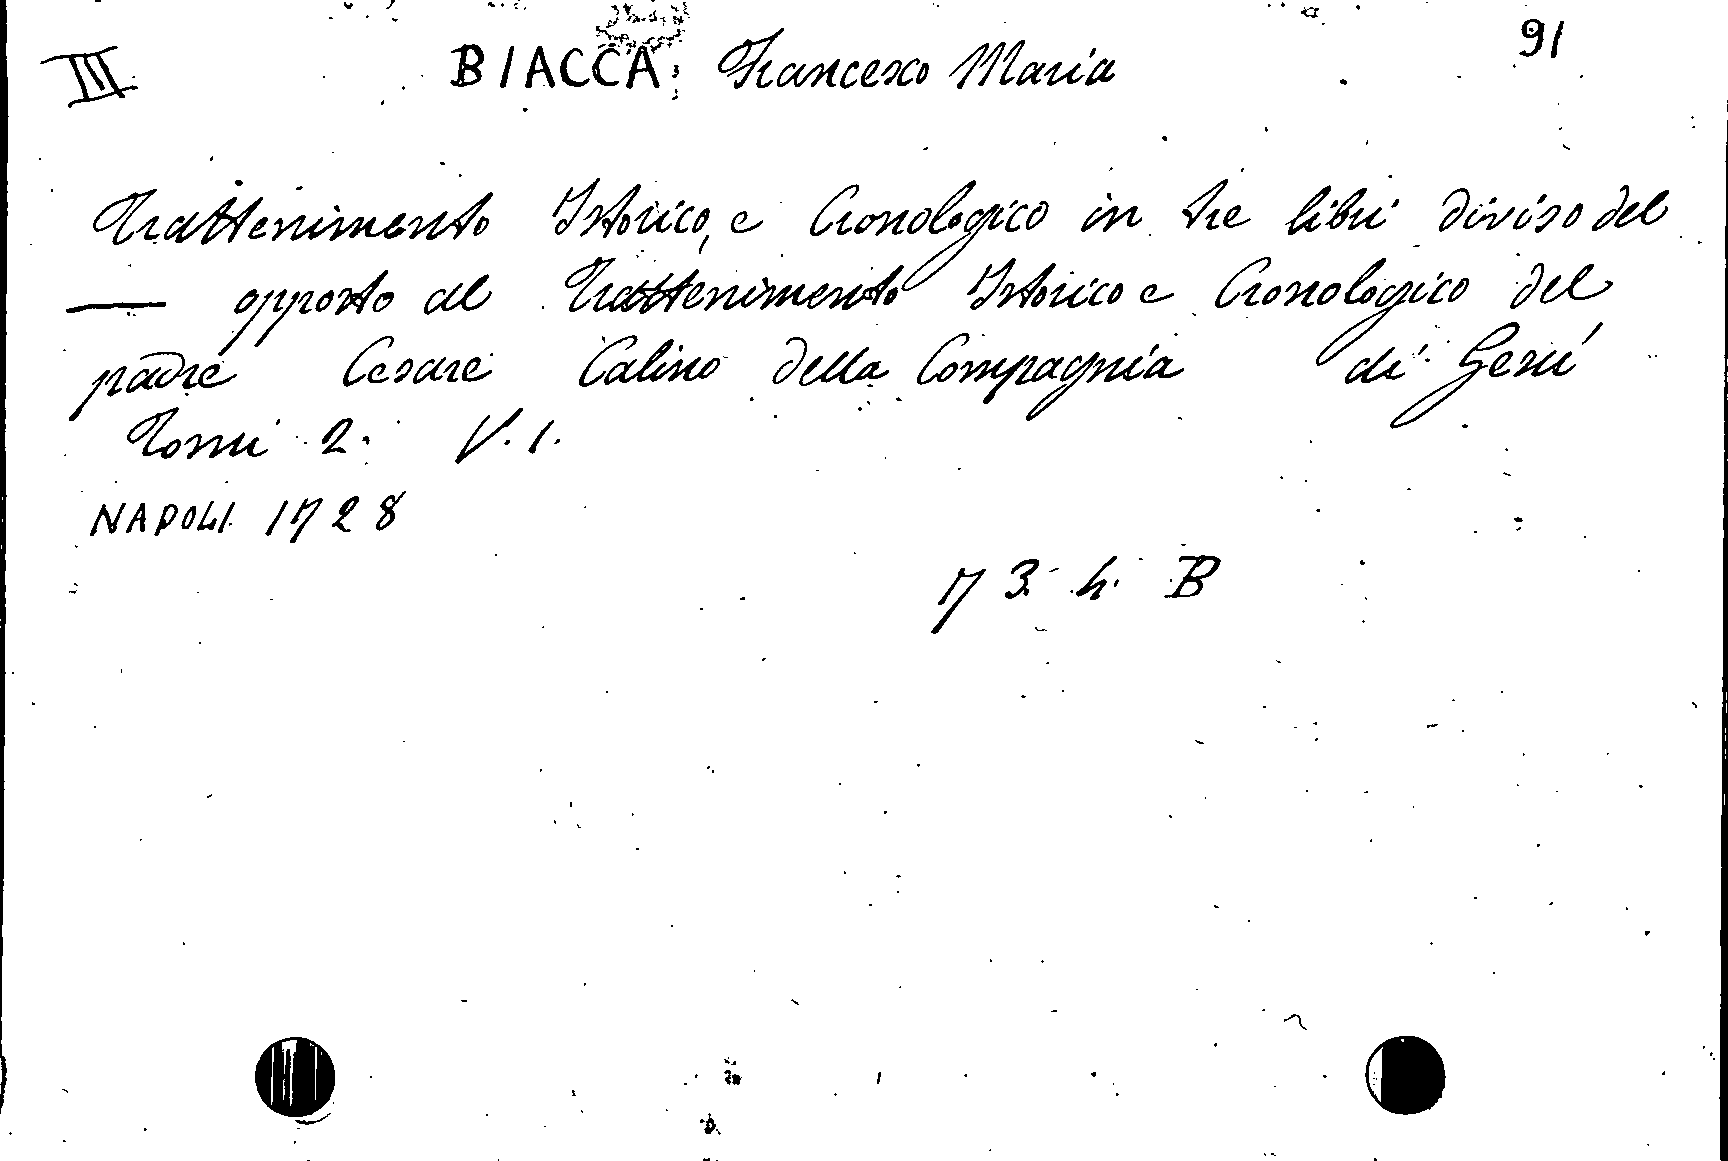 III BIACCA, Francesco Maria 91
Trattenimento Istorico, e Cronologico in tre libri diviso del
— opposto al Trattenimento Istorico e Cronologico del
padre Cesare Calino della Compagnia di Gesú
Tomi 2. V. 1.
NAPOLI 1728
73. h. B